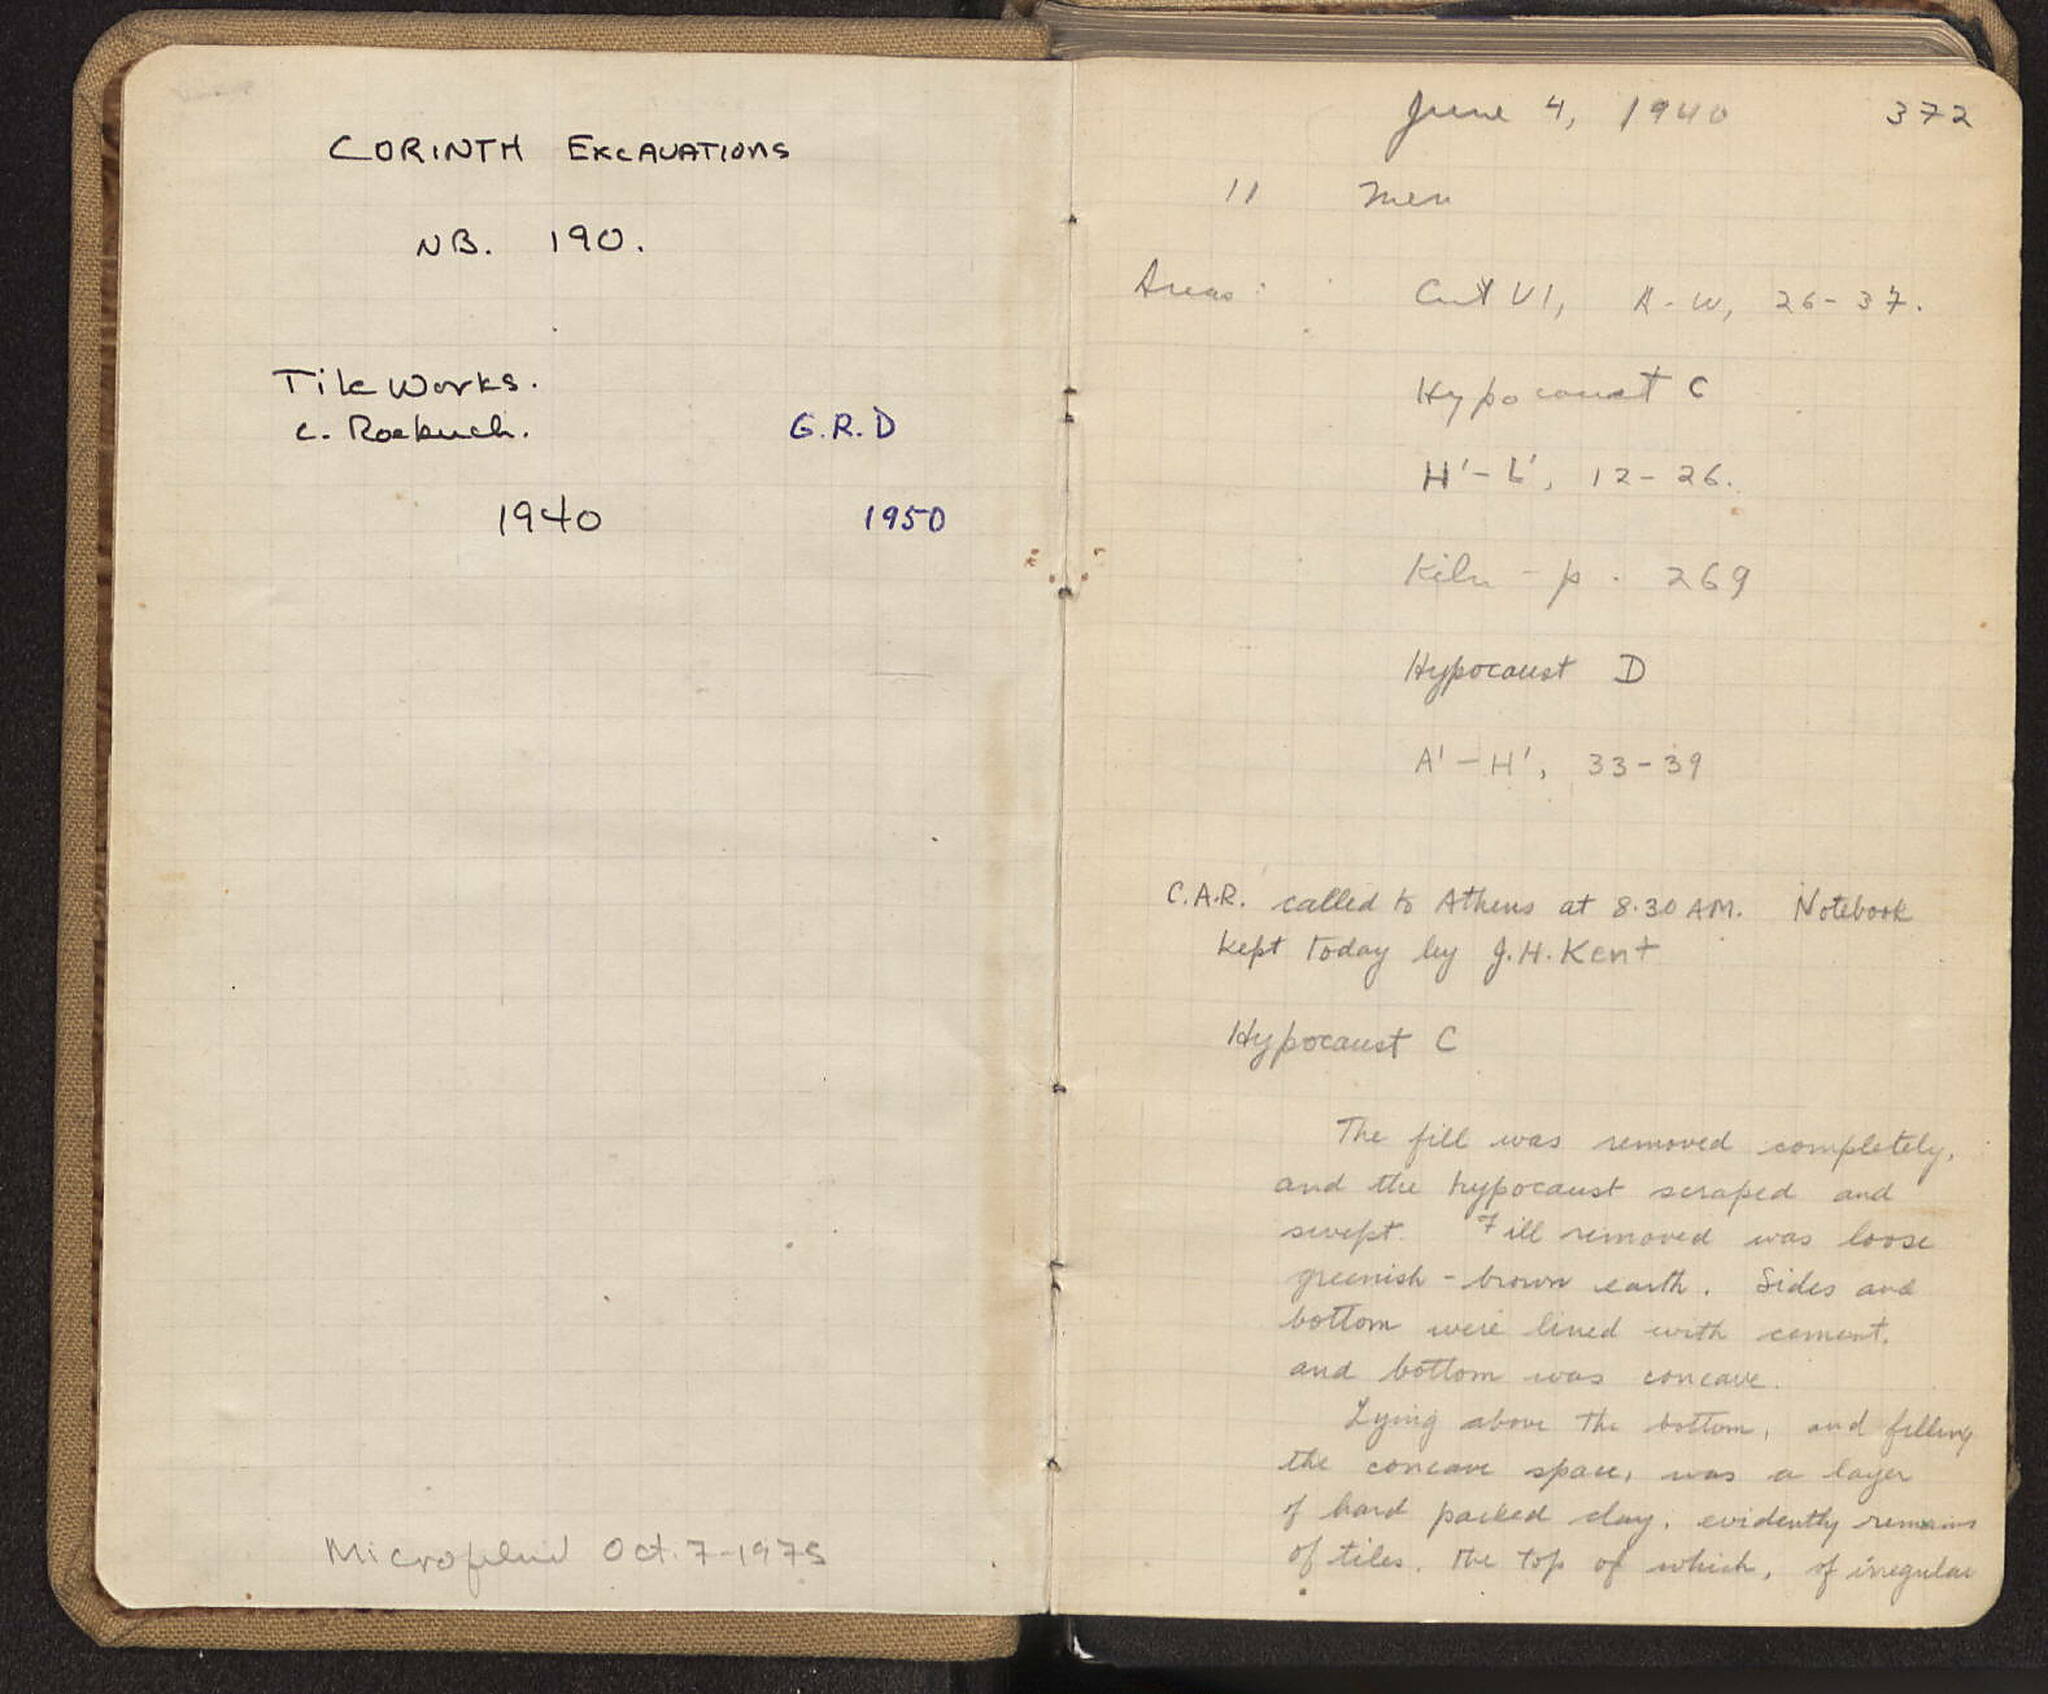 CORINTH EXCAVATIONS
NB. 190.
Tile Works.
C. Roebuck. G.R.D
1940 1950
Microfilmd Oct. 7-1975
June 4, 1940 372
11 Men
Areas: Cut VI, A-W, 26-37.
Hypocaust C
H'-L', 12-26.
Kiln - p. 269
Hypocaust D
A'-H', 33-39
C.A.R. called to Athens at 8.30 AM. Notebook
kept today by J.H. Kent
Hypocaust C
The fill was removed completely,
and the hypocaust scraped and
swept. Fill removed was loose
greenish-brown earth. Sides and
bottom were lined with cement,
and bottom was concave.
Lying above the bottom, and filling
the concave space, was a layer
of hard packed clay, evidently remains
of tiles, the top of which, of irregular